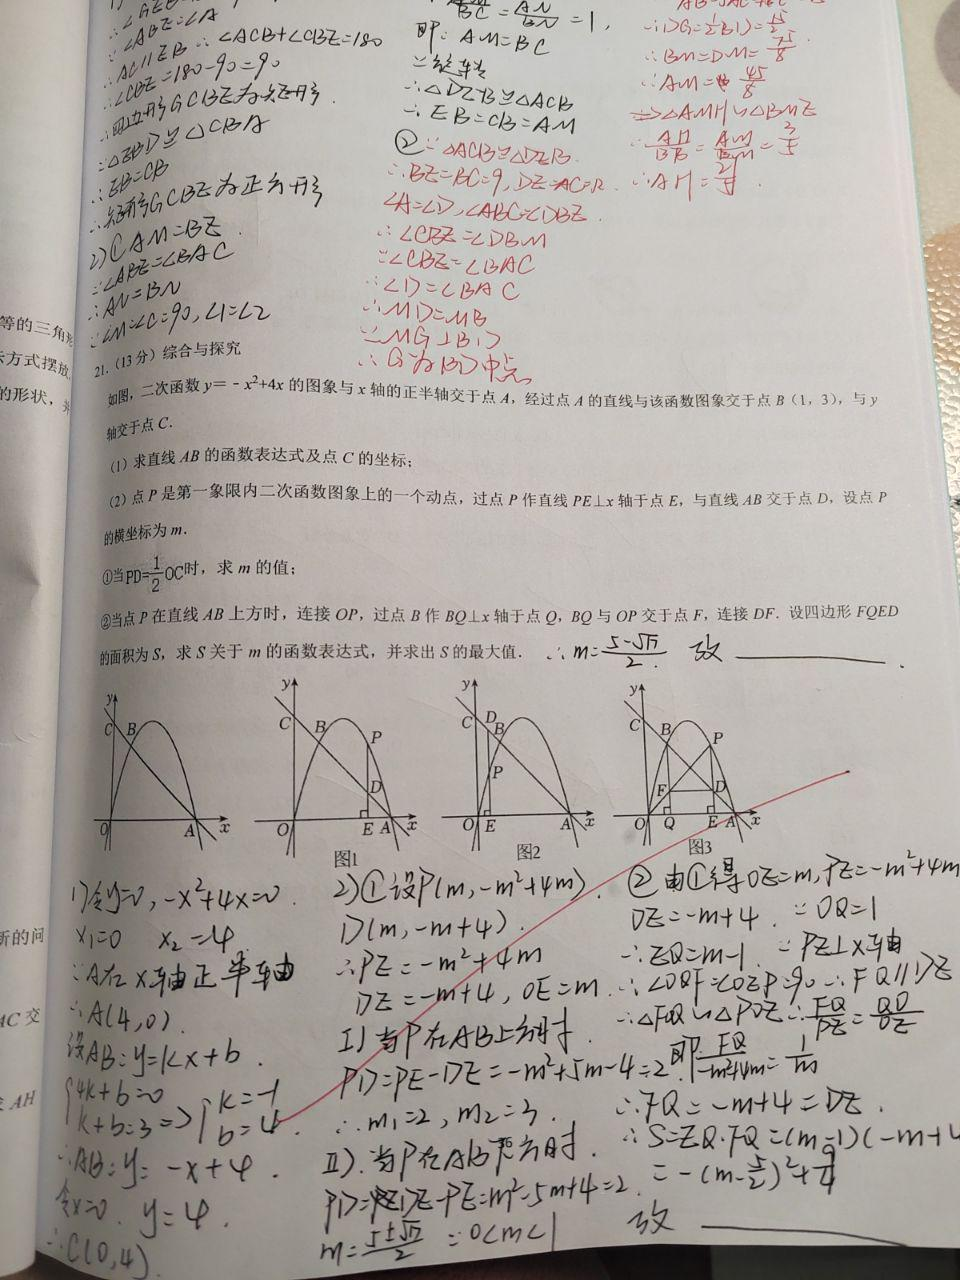 ∠ABE=∠A
∴AC∥EB ∴∠ACB+∠CBE=180
∴∠CBE=180-90=90
∴四边形GCBE为矩形.
∵△EBD≌△CBA
∴EB=CB
∴矩形GCBE为正方形
2)①AM=BE.
∵∠ABE=∠BAC
∴AN=BN
∵∠M=∠C=90,∠1=∠2
BC = AN/BN =1,
即: AM=BC
∵旋转
∴△DEB≌△ACB
∴EB=CB=AM
②∵△ACB≌△DEB.
∴BE=BC=9,DE=AC=12.
∠A=∠D,∠ABC=∠DBE.
∴∠CBE=∠DBM
∵∠CBE=∠BAC
∴∠D=∠BAC
∴MD=MB
∵MG⊥BD
∴G为BD中点
∴DG=1/2BD=15/2
∴BM=DM=75/8.
∴AM=45/8
⇒△AMH∽△BME
∴AH/BE=AM/BM=3/5
∴AH=27/5.
等的三角形
示方式摆放,
的形状,并
新的问
AC 交
AH
21.(13分)综合与探究
如图,二次函数y=﹣x²+4x的图象与x轴的正半轴交于点A,经过点A的直线与该函数图象交于点B(1,3),与y
轴交于点C.
(1)求直线AB的函数表达式及点C的坐标;
(2)点P是第一象限内二次函数图象上的一个动点,过点P作直线PE⊥x轴于点E,与直线AB交于点D,设点P
的横坐标为m.
①当PD=1/2OC时,求m的值;
②当点P在直线AB上方时,连接OP,过点B作BQ⊥x轴于点Q,BQ与OP交于点F,连接DF.设四边形FQED
的面积为S,求S关于m的函数表达式,并求出S的最大值.
∴m=5-√17/2. 故 ______.
y C B O A x
y C B P D O E A x
图1
y C D B P O E A x
图2
y C B P F D O Q E A x
图3
1)令y=0,-x²+4x=0.
x₁=0 x₂=4.
∵A在x轴正半轴
∴A(4,0).
设AB:y=kx+b.
{4k+b=0
k+b=3 => {k=-1
b=4.
∴AB:y=-x+4.
令x=0. y=4.
∴C(0,4).
2)①设P(m,-m²+4m)
D(m,-m+4).
∴PE=-m²+4m
DE=-m+4,OE=m.
I)当P在AB上方时.
PD=PE-DE=-m²+5m-4=2.
∴m₁=2,m₂=3.
II).当P在AB下方时.
PD=DE-PE=m²-5m+4=2.
m=5±√17/2 ∵0<m<1
②由①得OE=m,PE=-m²+4m
DE=-m+4. ∵OQ=1
∴EQ=m-1. ∵PE⊥x轴
∴∠OQF=∠OEP=90∴FQ∥DE
∴△FOQ∽△POE∴FQ/PE=OQ/OE
即FQ/-m²+4m=1/m
∴FQ=-m+4=DE.
∴S=EQ·FQ=(m-1)(-m+4
=-(m-5/2)²+9/4
故 ______